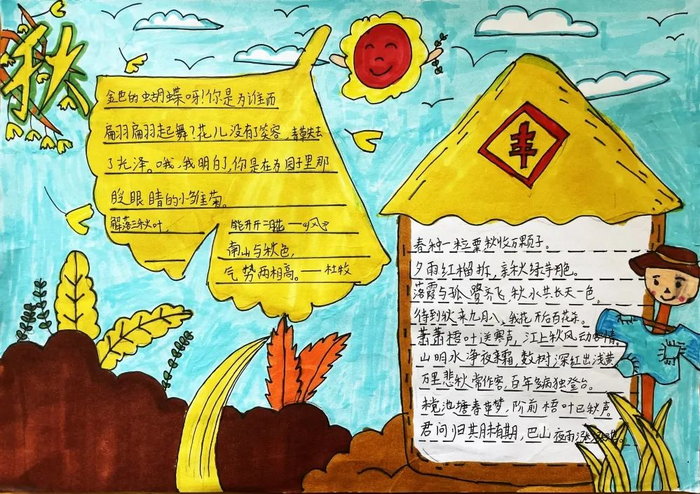 秋
金色的蝴蝶呀!你是为谁而
扇羽扇羽起舞?花儿没有了笑容,
了光泽。哦,我明白了,你是在为园子里那
眨眼睛的小雏菊。
解落三秋叶,
能开二月花——《风》
南山与秋色,
气势两相高。——杜牧
丰
春种一粒粟秋收万颗子。
夕雨红榴拆,新秋绿芋肥。
落霞与孤鹜齐飞秋水共长天一色,
待到秋来九月八,我花开后百花杀。
萧萧梧叶送寒声,江上秋风动客情。
山明水净夜来霜,数树深红出浅黄
万里悲秋常作客,百年多病独登台。
未觉池塘春草梦,阶前梧叶已秋声。
君问归期未有期,巴山夜雨涨